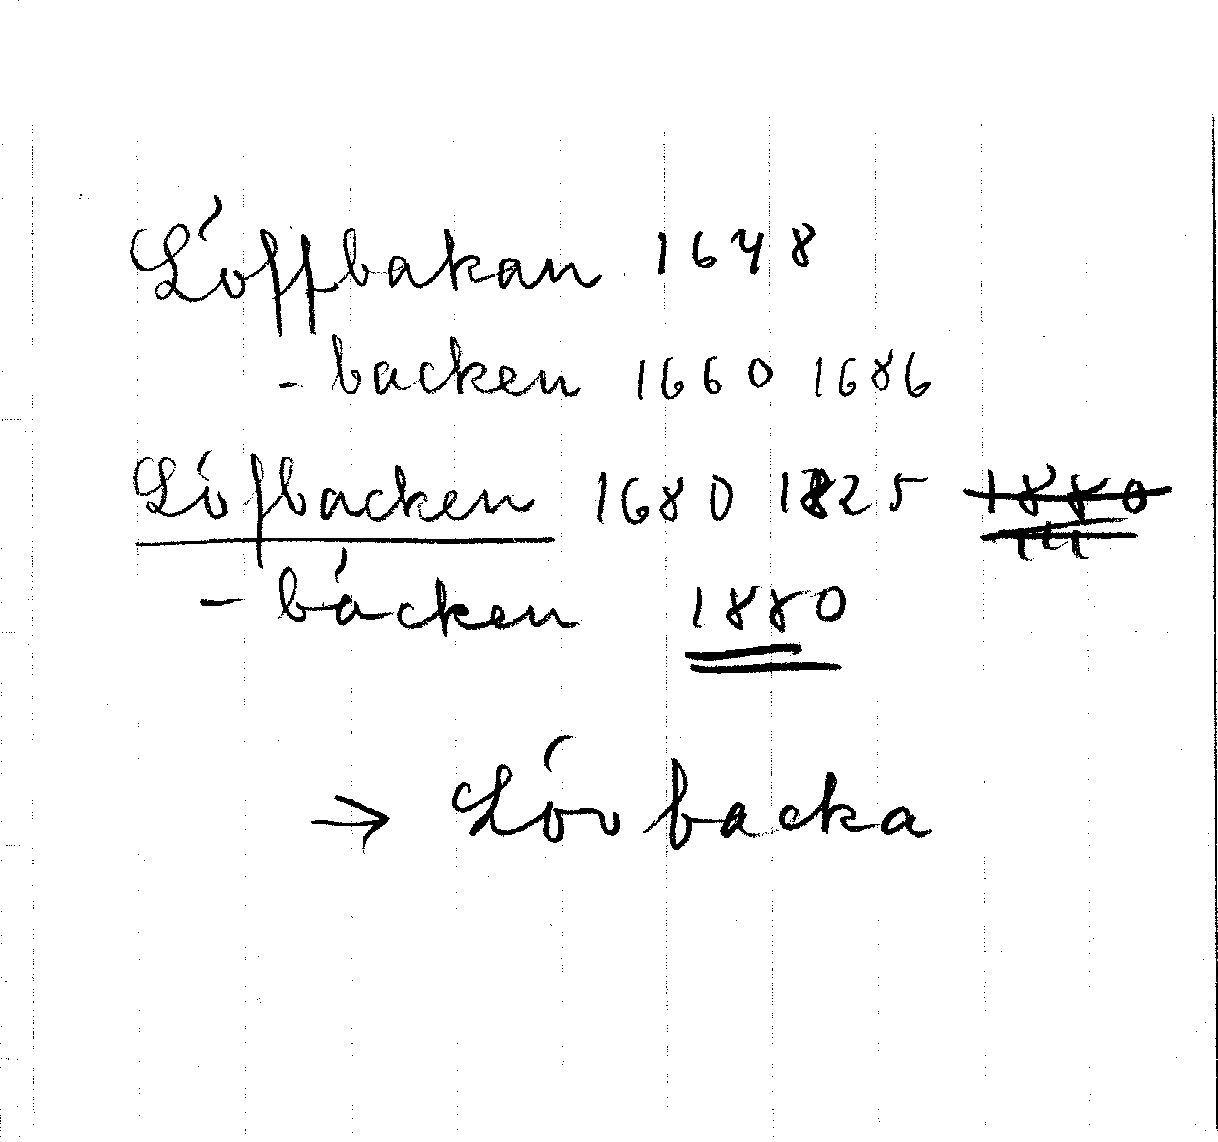 Löffbakan 1648
- backen 1660 1686
Löfbacken 1680 1825 1880
- bäcken 1880
→ Lövbacka